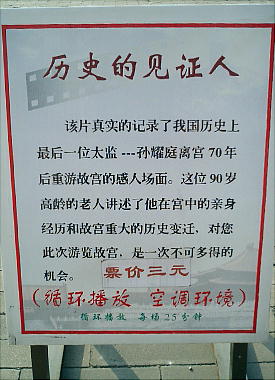 历史的见证人
该片真实的记录了我国历史上
最后一位太监---孙耀庭离宫70年
后重游故宫的感人场面。这位90岁
高龄的老人讲述了他在宫中的亲身
经历和故宫重大的历史变迁，对您
此次游览故宫，是一次不可多得的
机会。 票价三元
（循环播放 空调环境）
循环播放 每场25分钟